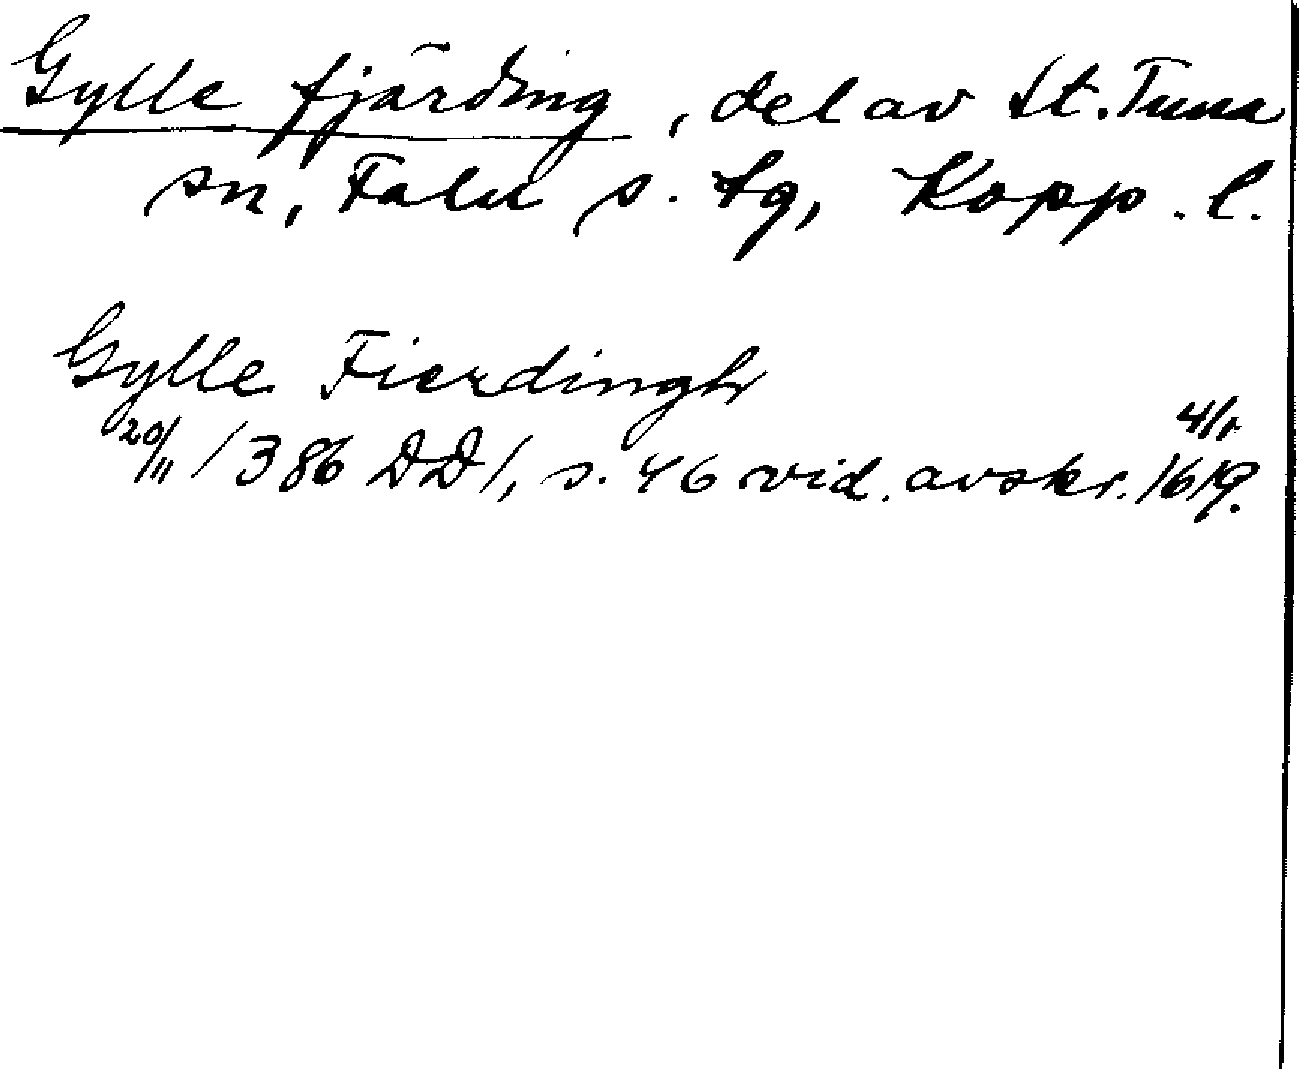 Gylle fjärding, del av St. Tuna
sn, Falu s. tg, Kopp. l.
Gylle Fierdingh
20/11 1386 DD 1, s. 46 vid. avskr. 4/1 1619.